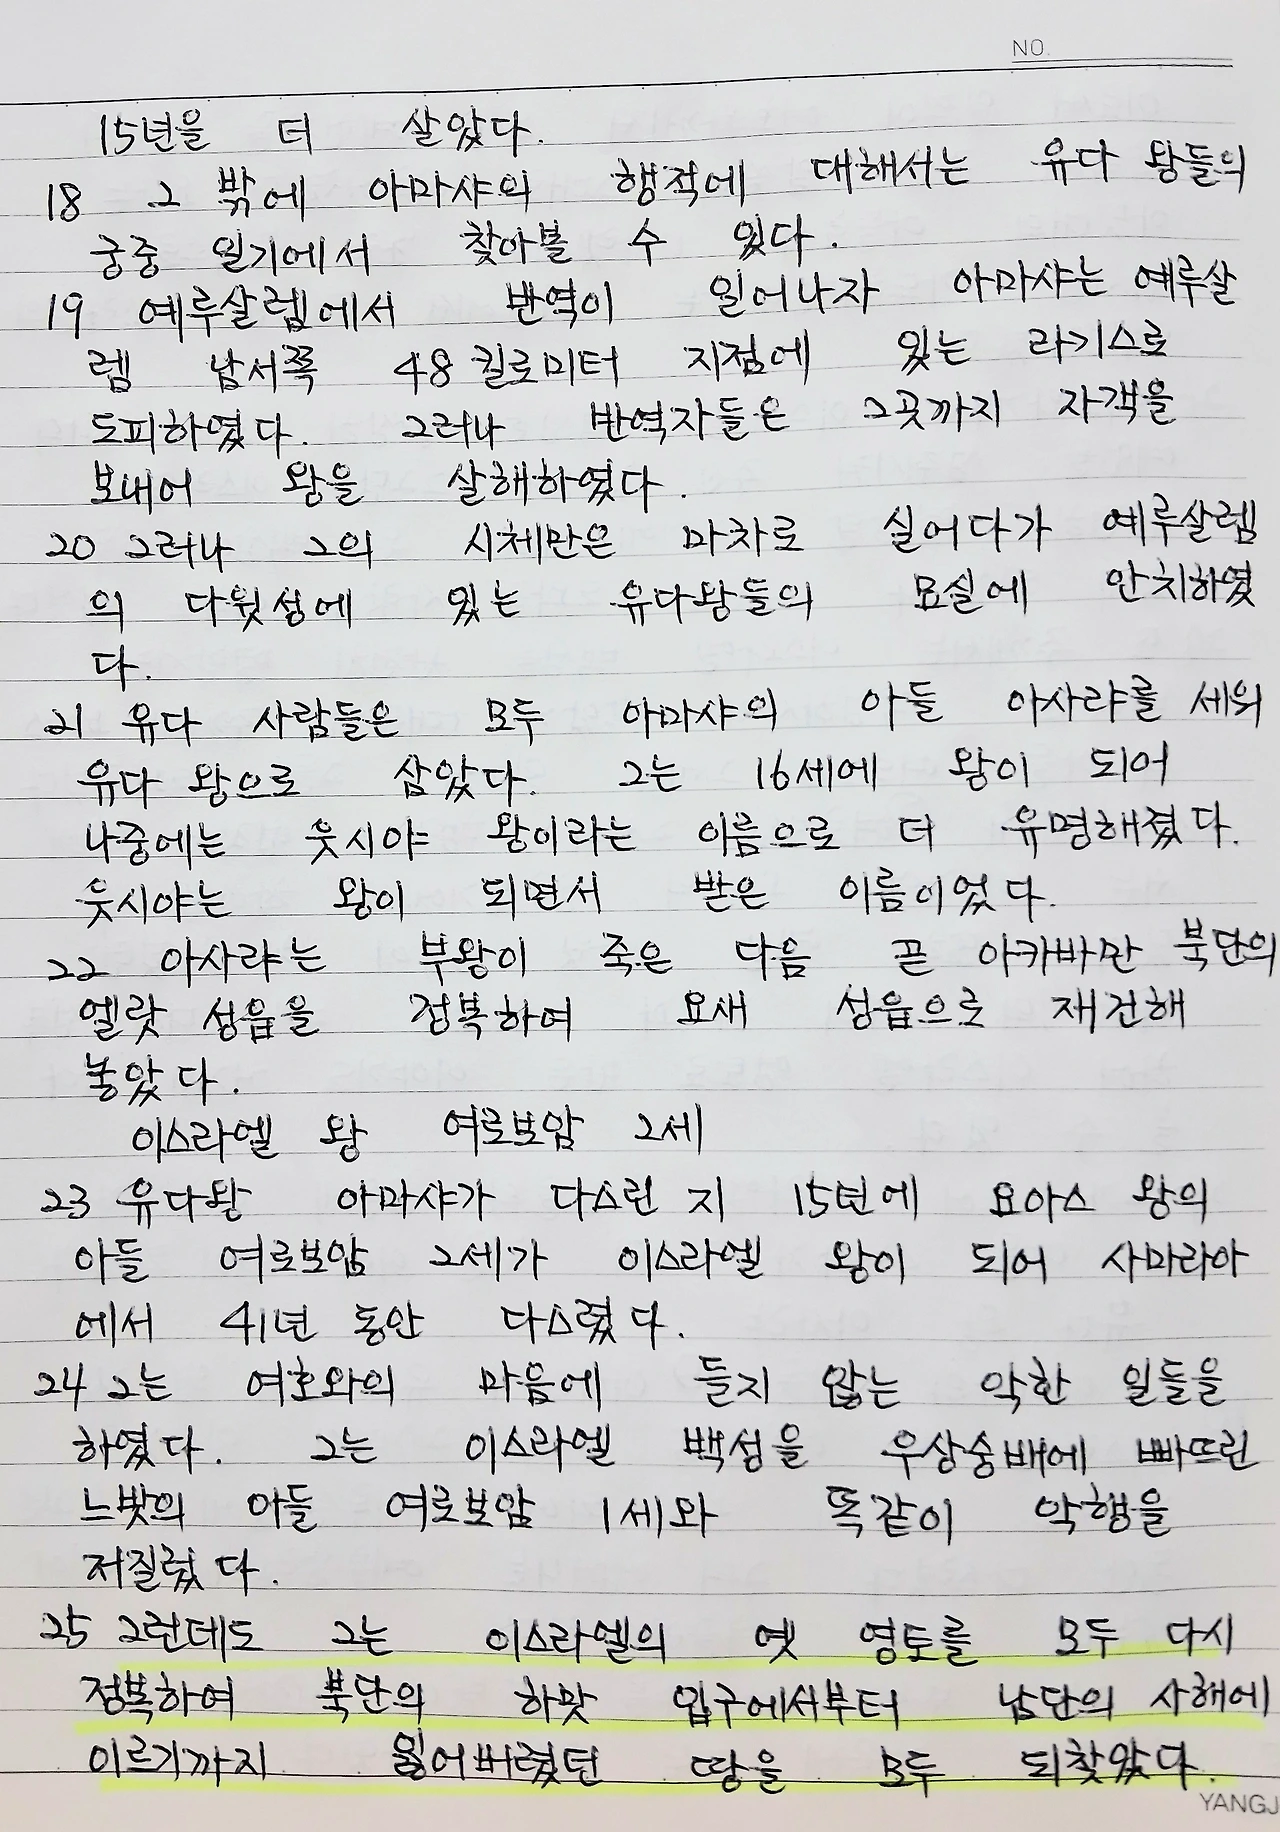 NO.
15년을 더 살았다.
18 그 밖에 아마샤의 행적에 대해서는 유다 왕들의
궁중 일기에서 찾아볼 수 있다.
19 예루살렘에서 반역이 일어나자 아마샤는 예루살
렘 남서쪽 48킬로미터 지점에 있는 라기스로
도피하였다. 그러나 반역자들은 그곳까지 자객을
보내어 왕을 살해하였다.
20 그러나 그의 시체만은 마차로 실어다가 예루살렘
의 다윗성에 있는 유다왕들의 묘실에 안치하였
다.
21 유다 사람들은 모두 아마샤의 아들 아사랴를 세워
유다 왕으로 삼았다. 그는 16세에 왕이 되어
나중에는 웃시야 왕이라는 이름으로 더 유명해졌다.
웃시야는 왕이 되면서 받은 이름이었다.
22 아사랴는 부왕이 죽은 다음 곧 아카바만 북단의
엘랏 성읍을 정복하여 요새 성읍으로 재건해
놓았다.
이스라엘 왕 여로보암 2세
23 유다왕 아마샤가 다스린 지 15년에 요아스 왕의
아들 여로보암 2세가 이스라엘 왕이 되어 사마리아
에서 41년 동안 다스렸다.
24 그는 여호와의 마음에 들지 않는 악한 일들을
하였다. 그는 이스라엘 백성을 우상숭배에 빠뜨린
느밧의 아들 여로보암 1세와 똑같이 악행을
저질렀다.
25 그런데도 그는 이스라엘의 옛 영토를 모두 다시
정복하여 북단의 하맛 입구에서부터 남단의 사해에
이르기까지 잃어버렸던 땅을 모두 되찾았다.
YANGJ